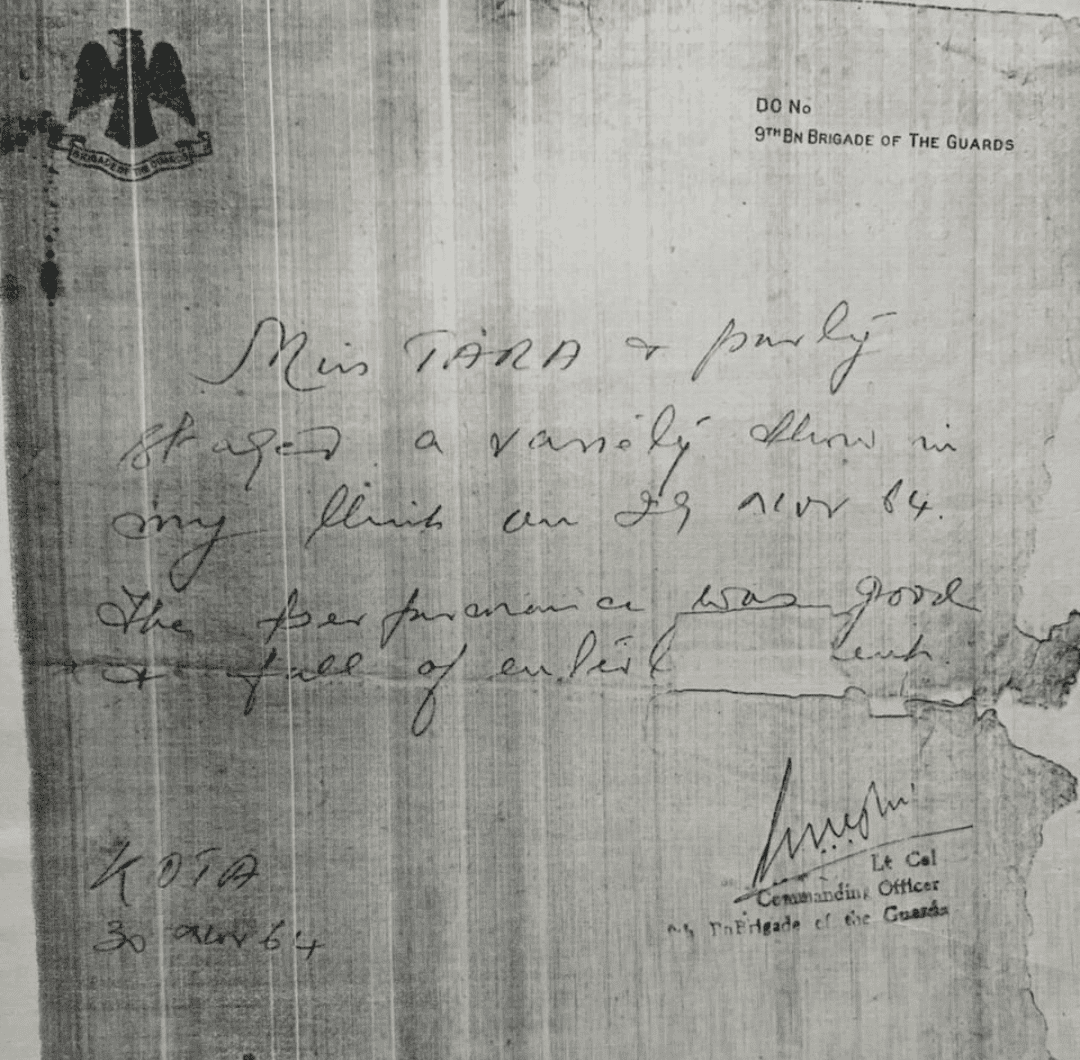 BRIGADE OF THE GUARDS
DO No
9TH BN BRIGADE OF THE GUARDS
Miss TARA & party
staged a variety show in
my Unit on 29 Nov 64.
The performance was good
& full of
KOTA
30 Nov 64
Lt Col
Commanding Officer
Bn Brigade of the Guards